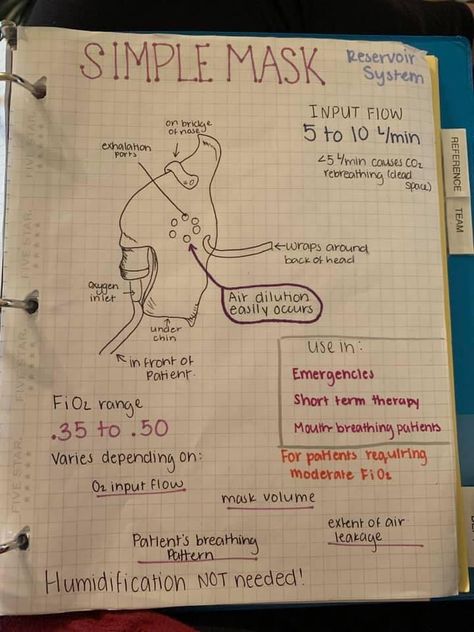 SIMPLE MASK
Reservoir
System
INPUT FLOW
5 to 10 L/min
<5 L/min causes CO2
rebreathing (dead
space)
on bridge
of nose
exhalation
ports
wraps around
back of head
Oxygen
inlet
Air dilution
easily occurs
under
chin
in front of
patient
use in:
Emergencies
Short term therapy
Mouth-breathing patients
FiO2 range
.35 to .50
For patients requiring
moderate FiO2
Varies depending on:
O2 input flow
mask volume
extent of air
leakage
Patient's breathing
Pattern
Humidification NOT needed!
REFERENCE
TEAM
FIVE STAR.
FIVE STAR.
FIVE STAR.